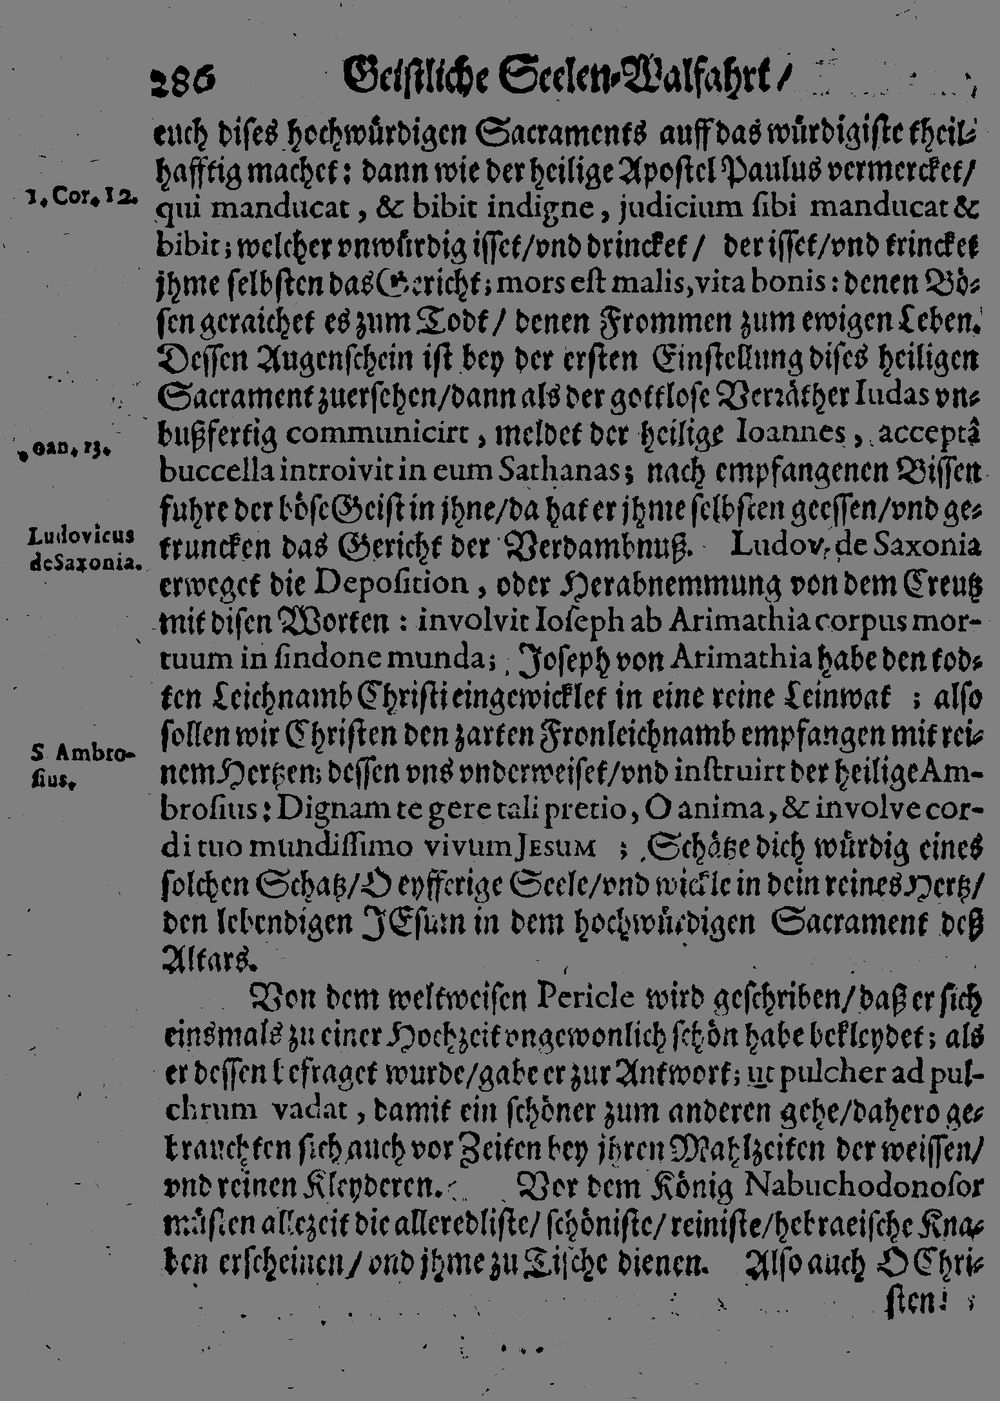 286 Geistliche Seelen-Walfahrt/
euch dises hochwürdigen Sacraments auff das würdigiste theil-
hafftig machet: dann wie der heilige Apostel Paulus vermercket/
1. Cor. 12.
qui manducat, & bibit indigne, judicium sibi manducat &
bibit; welcher vnwürdig isset/vnd drincket/ der isset/vnd trincket
jhme selbsten das Gericht; mors est malis, vita bonis: denen Bö-
sen geraichet es zum Todt/ denen Frommen zum ewigen Leben.
Dessen Augenschein ist bey der ersten Einstellung dises heiligen
Sacrament zuersehen/dann als der gottlose Verräther Iudas vn-
bußfertig communicirt, meldet der heilige Ioannes, acceptâ
oan. 13.
buccella introivit in eum Sathanas; nach empfangenen Bissen
fuhre der böse Geist in jhne/da hat er jhme selbsten geessen/vnd ge-
Ludovicus
de Saxonia.
truncken das Gericht der Verdambnuß. Ludov. de Saxonia
erweget die Deposition, oder Herabnemmung von dem Creutz
mit disen Worten: involvit Ioseph ab Arimathia corpus mor-
tuum in sindone munda; Joseph von Arimathia habe den tod-
ten Leichnamb Christi eingewicklet in eine reine Leinwat ; also
sollen wir Christen den zarten Fronleichnamb empfangen mit rei-
S Ambro-
sius.
nem Hertzen; dessen vns vnderweiset/vnd instruirt der heilige Am-
brosius: Dignam te gere tali pretio, O anima, & involve cor-
di tuo mundissimo vivum JESUM ; Schätze dich würdig eines
solchen Schatz/O eyfferige Seele/vnd wickle in dein reines Hertz/
den lebendigen JEsum in dem hochwürdigen Sacrament deß
Altars.
Von dem weltweisen Pericle wird geschriben/daß er sich
einsmals zu einer Hochzeit vngewonlich schön habe bekleydet; als
er dessen befraget wurde/gabe er zur Antwort; ut pulcher ad pul-
chrum vadat, damit ein schöner zum anderen gehe/dahero ge-
brauchten sich auch vor Zeiten bey jhren Mahlzeiten der weissen/
vnd reinen Kleyderen. Vor dem König Nabuchodonosor
müsten allezeit die alleredliste/ schöniste/ reiniste/hebraeische Kna-
ben erscheinen/ vnd jhme zu Tische dienen. Also auch O Chri-
sten!